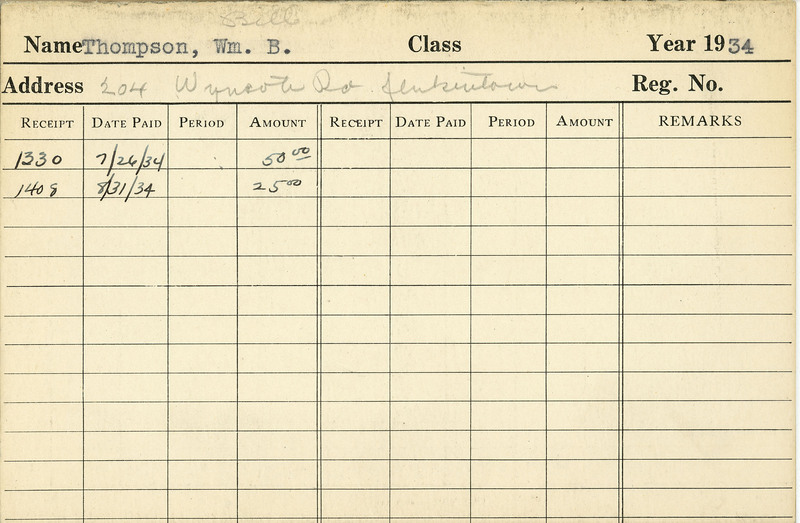 Bill
Name Thompson, Wm. B. Class Year 1934
Address 204 Wyncote Rd Jenkintown Reg. No.
RECEIPT DATE PAID PERIOD AMOUNT RECEIPT DATE PAID PERIOD AMOUNT REMARKS
1330 7/26/34 50 00
1408 8/31/34 25 00